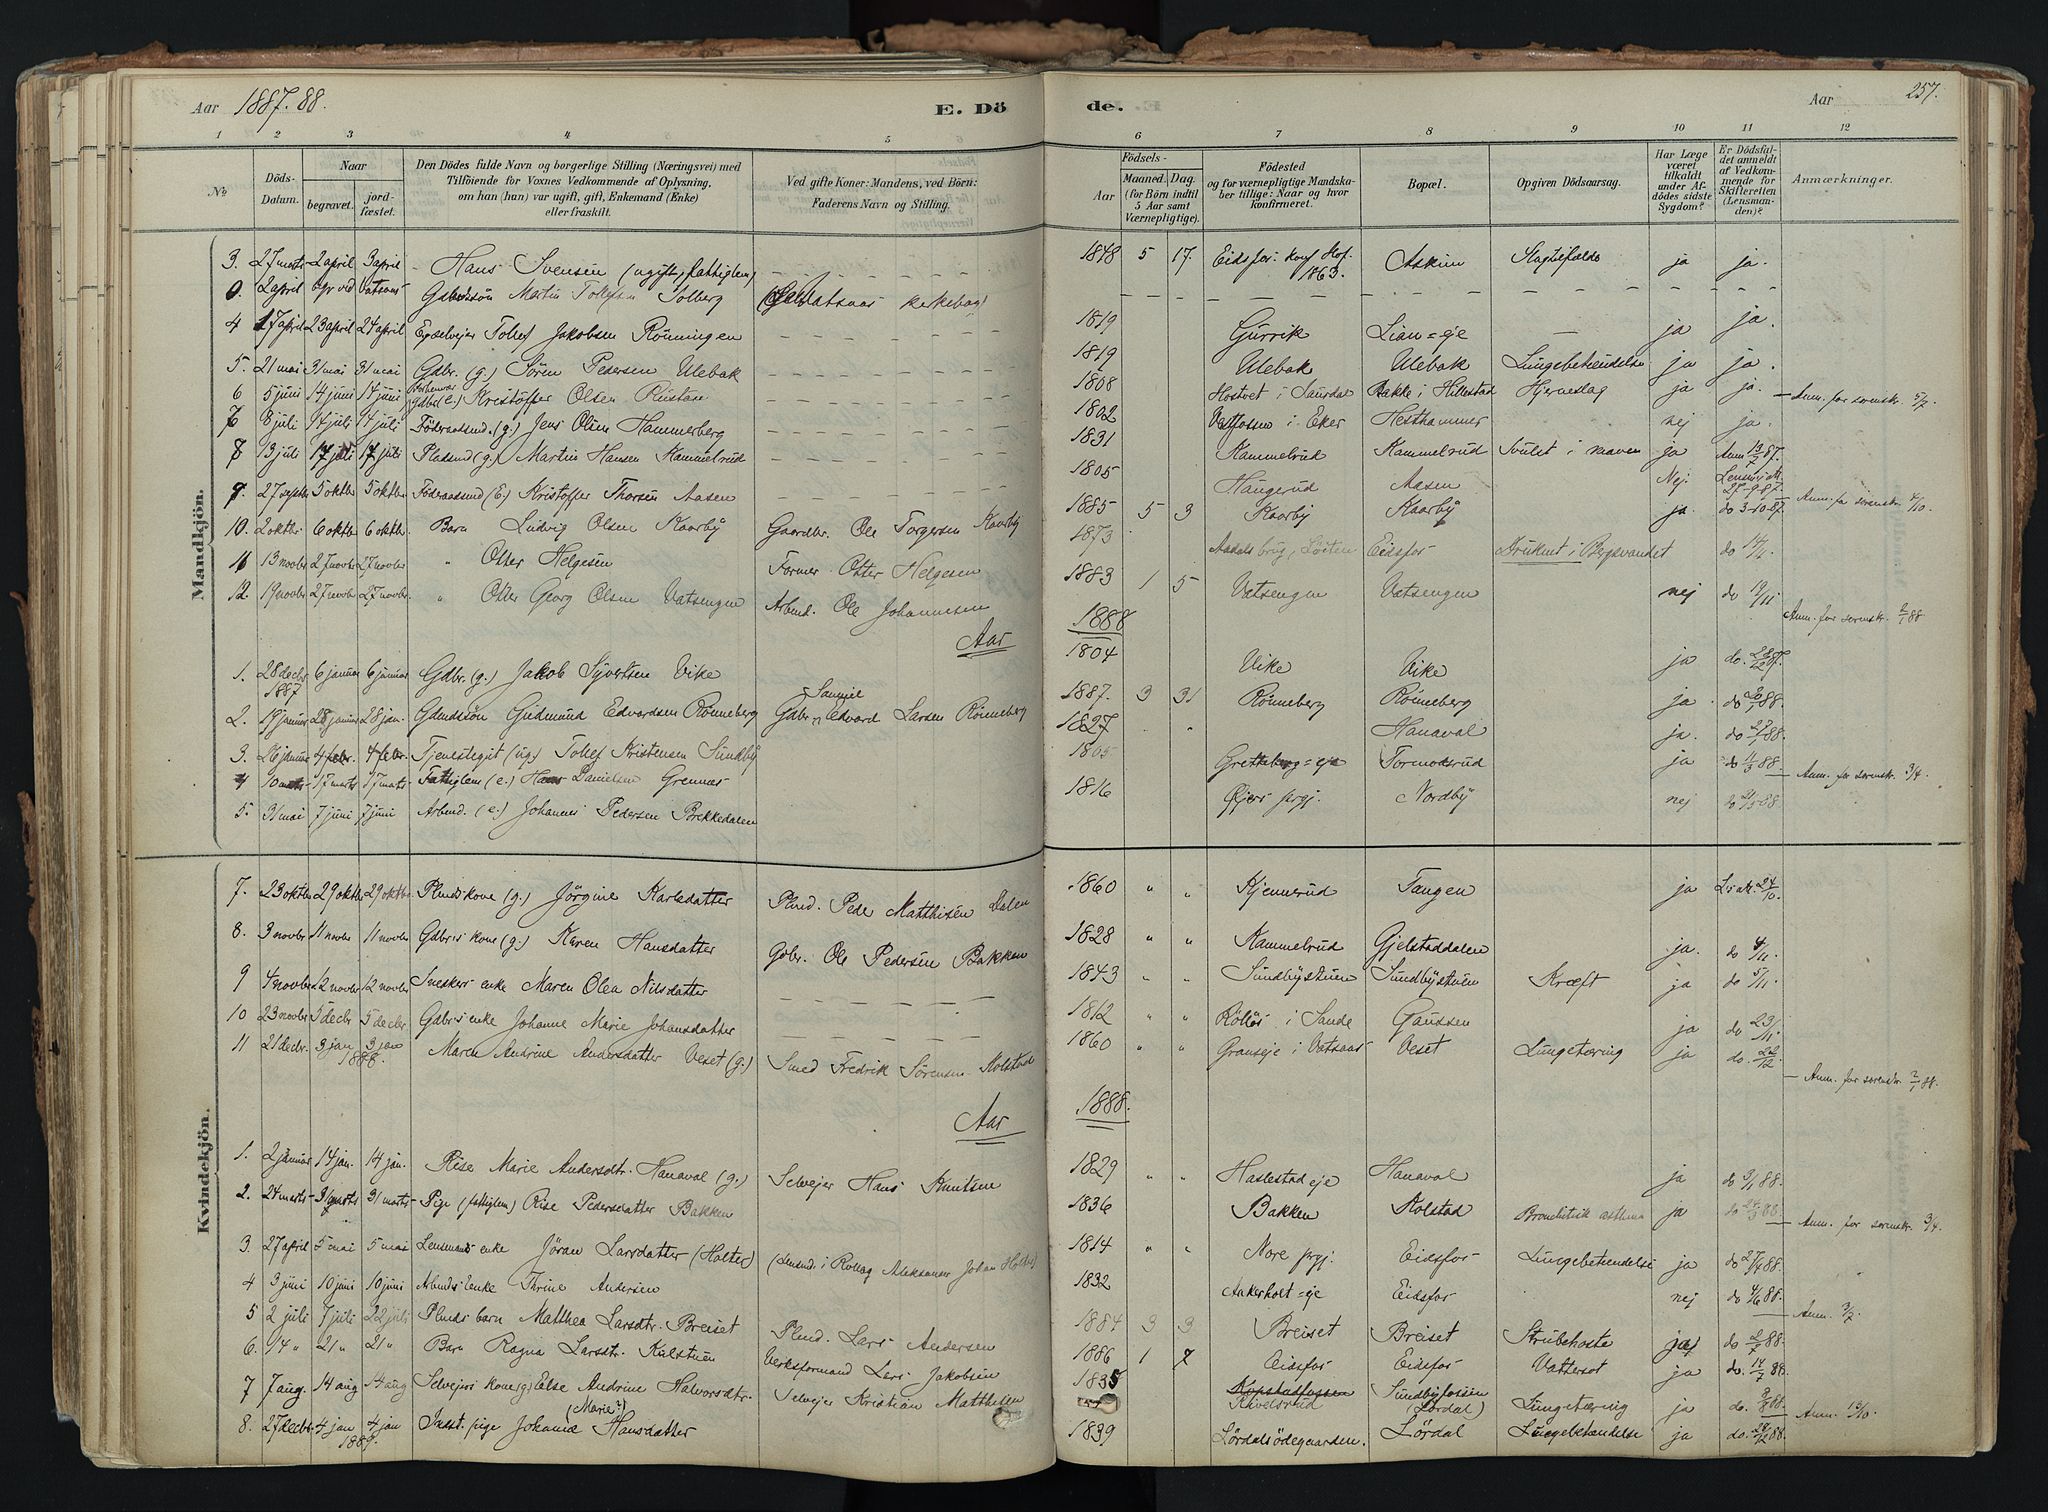 Aar 1887.88. E. Dö de. Aar 257.
1 2 3 4 5 6 7 8 9 10 11 12
No Döds-Datum. Naar begravet. jordfæstet. Den Dödes fulde Navn og borgerlige Stilling (Næringsvei) med Tilföiende for Voxnes Vedkommende af Oplysning, om han (hun) var ugift, gift, Enkemand (Enke) eller fraskilt. Ved gifte Koner: Mandens, ved Börn: Faderens Navn og Stilling. Födsels- Aar Maaned. Dag. (for Börn indtil 5 Aar samt Værnepligtige). Födested og for værnepligtige Mandskaber tillige: Naar og hvor konfirmeret. Bopæl. Opgiven Dödsaarsag. Har Læge været tilkaldt under Afdödes sidste Sygdom? Er Dödsfaldet anmeldt af Vedkommende for Skifteretten (Lensmanden)? Anmærkninger.
Mandkjön.
3. 27 marts 2 april 3 april Hans Svensen (ugift, fattiglem) 1848 5 17. Eidsfos: konf. Hof. 1863. Askim ja ja.
0. 2 april Martin Tollefsen Solberg
4 17 april 23 april 24 april Tollef Jakobsen Rönningen 1819 Gurrik Lian=eje ja ja.
5. 21 mai 31 mai 31 mai Gdbr. (g.) Sören Pedersen Ulebak 1819 Ulebak Ulebak Lungebetændelse ja ja.
6 5 juni 14 juni 14 juni Gdbr (e.) Kristoffer Olsen Rustan 1808 Hostvet i Sandar Bakke i Hillestad Hjerneslag ja ja. Anm. for sorenskr. 5/7
7 8 juli 14 juli 14 juli Föderaadsmd. (g.) Jens Olsen Hammerberg 1802 Vestfossen i Eker Hesthammer nej ja.
8 13 juli 17 juli 17 juli Pladsmd (g.) Martin Hansen Kammelrud 1831 Kammelrud Kammelrud Svulst i maven ja Anm 13/7 87.
9. 27 septbr 5 oktbr 5 oktbr. Föderaadsmd (E.) Kristoffer Thorsen Aasen 1805 Haugerud Aasen Nej. 27-9-87. Anm. for sorenskr. 4/10
10. 2 oktbr. 6 oktbr 6 oktbr. Barn Ludvig Olsen Kaarby Gaardbr. Ole Torgersen Kaarby 1885 5 3 Kaarby Kaarby ja do 3-10-87.
11 13 novbr 27 novbr 27 novbr " Otter Helgesen Former Otter Helgesen 1873 Aadals brug, Löiten Eidsfos Druknet i Bergsvandet do 14/11.
12. 19 novbr 27 novbr 27 novbr. " Otter Georg Olsen Vatsengen Arbmd. Ole Johannesen 1883 1 5 Vatsengen Vatsengen nej do 19/11 Anm. for sorenskr. 2/1 88
Aar 1888
1. 28 decbr 1887 6 januar 6 januar Gdbr. (g.) Jakob Syvertsen Vike 1804 Vike Vike ja do. 28/12 87.
2. 19 januar 28 januar 28 jan. Gdmdssön Gudmund Edvardsen Rönneberg Gdbr. Samuel Edvard Larsen Rönneberg 1887. 3 31 Rönneberg Rönneberg ja do 20/1 88.
3. 26 januar 4 febr. 4 febr. Tjenestegut (ug.) Tollef Kristensen Sundby 1827 Hanaval ja. do 27/1 88.
4 10 marts 17 marts 17 marts Fattiglem (e.) Hans Danielsen Grennes 1805 Gretteberg=eje Tormodsrud ja do 1/3 88 Anm. for sorenskr. 3/4.
5. 31 mai 7 juni 7 juni Arbmd. (e.) Johannes Pedersen Brekkedalen 1816 Öyers prgj. Nordby nej
Kvindekjön.
7. 23 oktbr 29 oktbr 29 oktbr. Plmds kone (g.) Jörgine Karlsdatter Plmd. Peder Matthisen Dalen 1860 " " Kjennerud Tangen ja 24/10.
8. 3 novbr 11 novbr 11 novbr Gdbr's kone (g.) Karen Hansdatter Gdbr. Ole Pedersen Bakken 1828 " " Kammelrud Gjelstaddalen ja. do 4/11.
9 4 novbr 12 novbr 12 novbr Snekkers enke Maren Olea Nilsdatter 1843 " " Sundbystuen Sundbystuen Kræft ja do 5/11.
10 23 novbr 5 decbr 5 decbr Gdbr's enke Johanne Marie Johansdatter 1812 " " i Sande Gaussen ja do 23/11.
11 21 decbr. 3 jan 1888. 3 jan Maren Andrine Andersdatter Veset (g.) Smed Fredrik Sörensen Molstad 1860 " " Granseje i Vatsaas Veset Lungetæring ja do. 22/12 Anm. for sorenskr. 2/1 88.
Aar 1888.
1. 2 januar 14 jan. 14 jan. Rise Marie Andersdtr. Hanaval (g.) Selvejer Hans Knutsen 1829 " " Haslestad eje Hanaval ja do 3/1 88.
2. 24 marts 31 marts 31 marts Pige (fattiglem) Rise Pedersdatter Bakken 1836 Bakken Kolstad Bronchitisk asthma ja do 24/3 88. Anm. for sorenskr. 3/4.
3. 27 april 5 mai 5 mai Lensmands enke Jöran Larsdatter (Holter) (Lensmd. i Rollag Aleksander Johan Holter) 1814 " " Nore prgj: Eidsfos Lungebetændelse ja do 27/4 88.
4 3 juni 10 juni 10 juni Arbmds Enke Thrine Andersen 1832 Aakerholt=eje Eidsfos nej do 4/6 88. Anm. 3/7.
5 2 juli 7 juli 22 juli Plmds barn Matthea Larsdtr. Breiset Plmd. Lars Andersen 1884 3 3 Breiset Breiset Strubehoste do 2/7 88.
6. 14 " 21 " 21 " Barn Ragna Larsdtr. Kulstuen Verksformand Lars Jakobsen 1886 1 7 Eidsfos Eidsfos Vattersot ja do. 14/7 88.
7 7 aug. 14 aug 14 aug Selvejers kone (g) Else Andrine Halvorsdtr. Selvejer Kristian Matthisen 1835 Kopstadfossen Kivelsrud Sundbyfossen (Lördal) Lungetæring ja do. 8/8 88. Anm. 15/10.
8. 27 decbr. 4 jan 1889. 4 jan Inst. pige Johanne (Marie?) Hansdatter 1839 Lördalsödegaarden. Lördal Lungebetændelse ja do. 28/12 88.